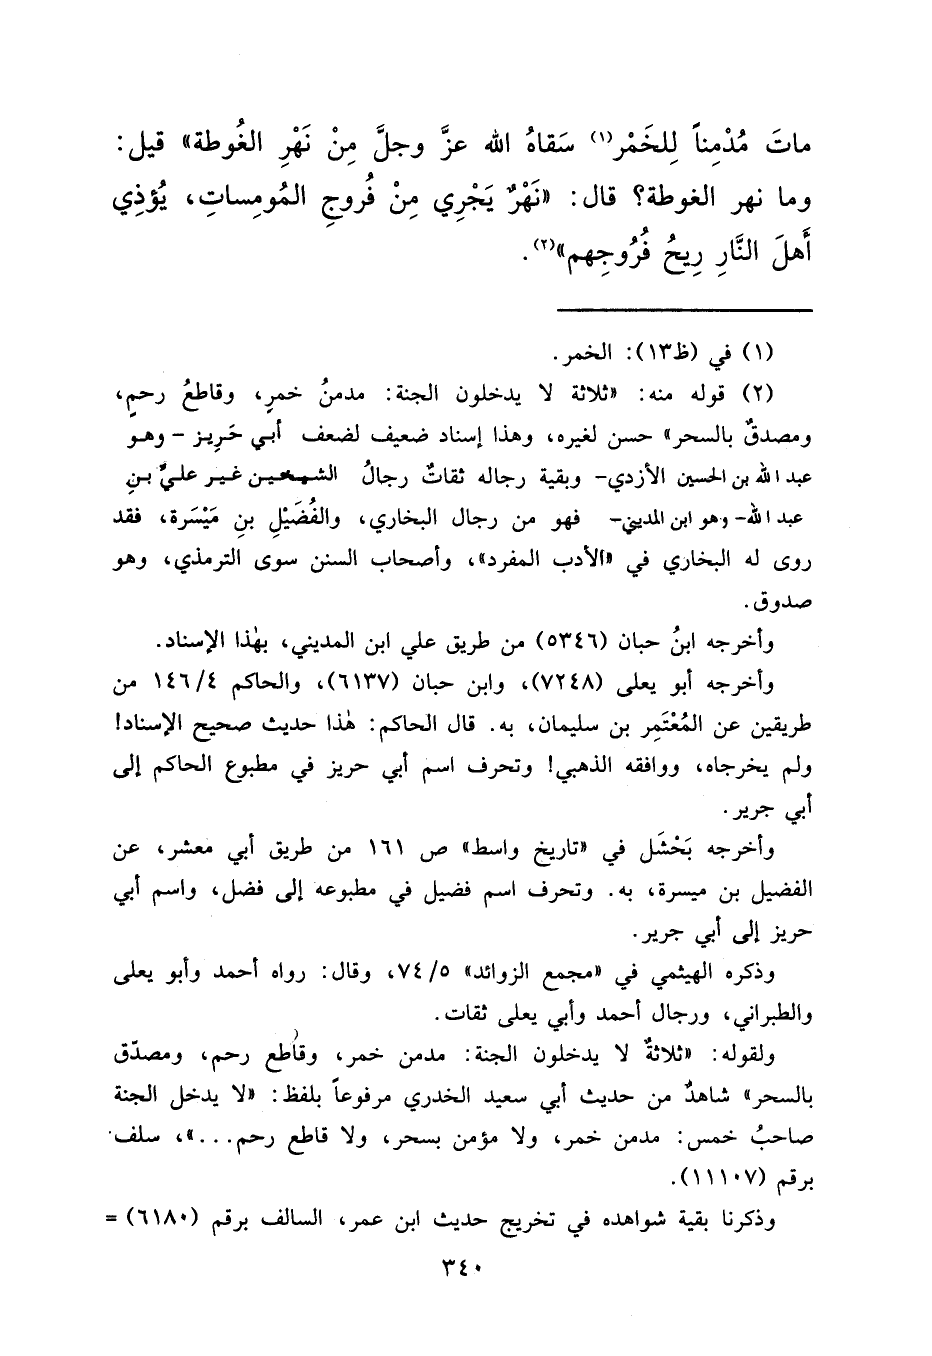 ماتَ مُدْمِناً لِلخَمْرِ(١) سَقاهُ الله عزَّ وجلَّ مِنْ نَهْرِ الغُوطة» قيل:
وما نهر الغوطة؟ قال: «نَهْرٌ يَجْرِي مِنْ فُروجِ المُومِساتِ، يُؤذِي
أَهلَ النَّارِ رِيحُ فُرُوجِهم»(٢).
(١) في (ظ١٣): الخمر.
(٢) قوله منه: «ثلاثة لا يدخلون الجنة: مدمنُ خمرٍ، وقاطعُ رحمٍ،
ومصدقٌ بالسحر» حسن لغيره، وهذا إسناد ضعيف لضعف أبي حَرِيز -وهو
عبد الله بن الحسين الأزدي- وبقية رجاله ثقاتٌ رجالُ الشيخين غير عليِّ بنِ
عبد الله- وهو ابن المديني- فهو من رجال البخاري، والفُضَيْلِ بنِ مَيْسَرة، فقد
روى له البخاري في «الأدب المفرد»، وأصحاب السنن سوى الترمذي، وهو
صدوق.
وأخرجه ابنُ حبان (٥٣٤٦) من طريق علي ابن المديني، بهٰذا الإسناد.
وأخرجه أبو يعلى (٧٢٤٨)، وابن حبان (٦١٣٧)، والحاكم ١٤٦/٤ من
طريقين عن المُعْتَمِر بن سليمان، به. قال الحاكم: هٰذا حديث صحيح الإسناد!
ولم يخرجاه، ووافقه الذهبي! وتحرف اسم أبي حريز في مطبوع الحاكم إلى
أبي جرير.
وأخرجه بَحْشَل في «تاريخ واسط» ص ١٦١ من طريق أبي معشر، عن
الفضيل بن ميسرة، به. وتحرف اسم فضيل في مطبوعه إلى فضل، واسم أبي
حريز إلى أبي جرير.
وذكره الهيثمي في «مجمع الزوائد» ٧٤/٥، وقال: رواه أحمد وأبو يعلى
والطبراني، ورجال أحمد وأبي يعلى ثقات.
ولقوله: «ثلاثةٌ لا يدخلون الجنة: مدمن خمر، وقاطع رحم، ومصدّق
بالسحر» شاهدٌ من حديث أبي سعيد الخدري مرفوعاً بلفظ: «لا يدخل الجنة
صاحبُ خمس: مدمن خمر، ولا مؤمن بسحر، ولا قاطع رحم...»، سلف
برقم (١١١٠٧).
وذكرنا بقية شواهده في تخريج حديث ابن عمر، السالف برقم (٦١٨٠) =
٣٤٠